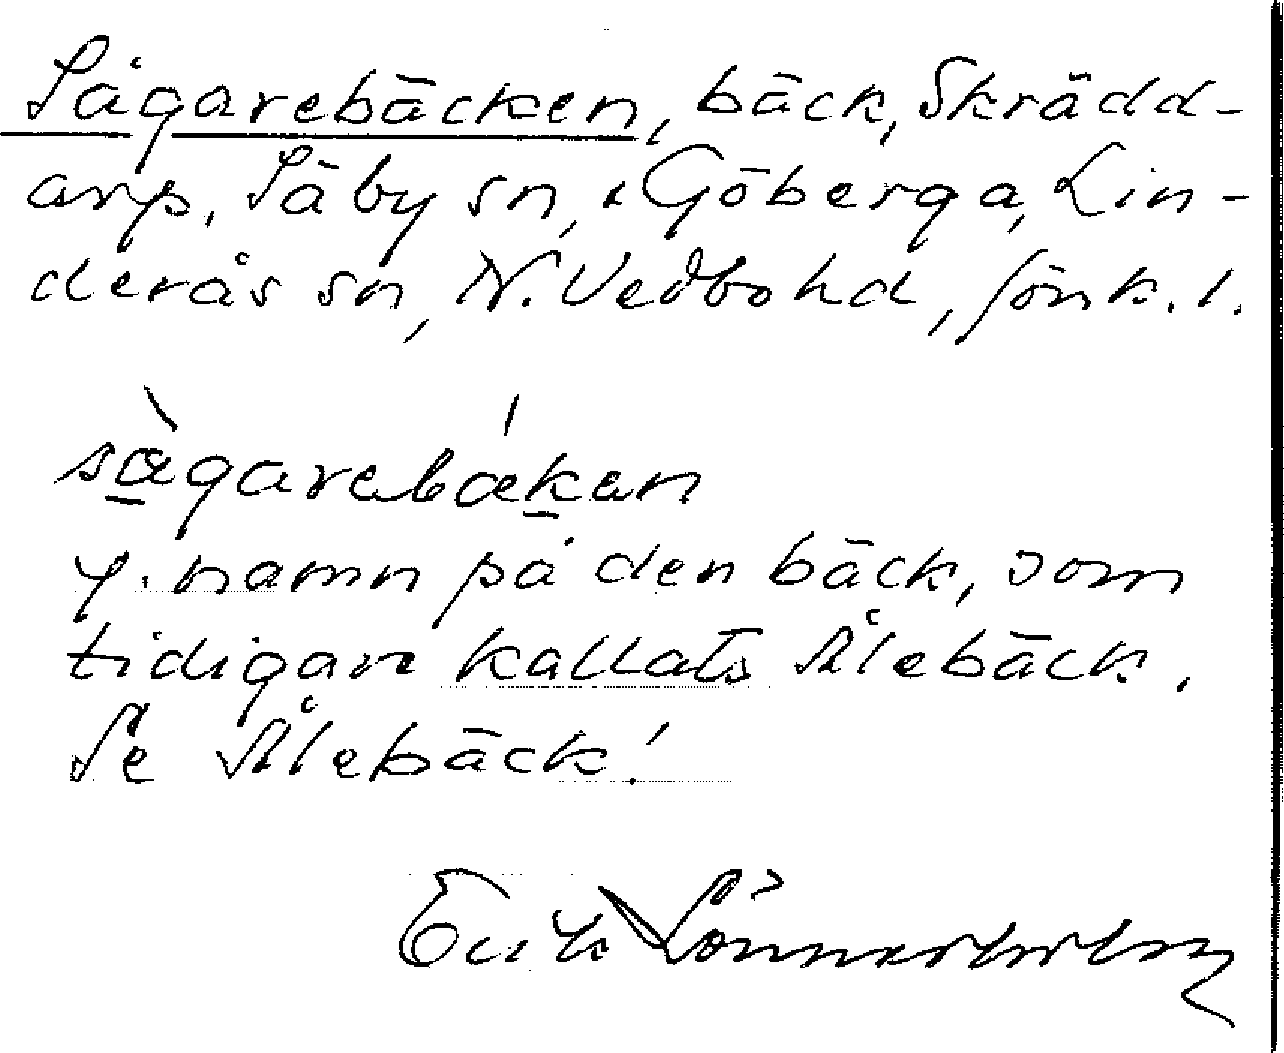 Sågarebäcken, bäck, Skrädd-
arp, Säby sn, & Göberga, Lin-
derås sn, N. Vedbo hd, Jönk. l.
sågarebäken
y. namn på den bäck, som
tidigare kallats Ålebäck.
Se Ålebäck!
Erik Lönnerholm